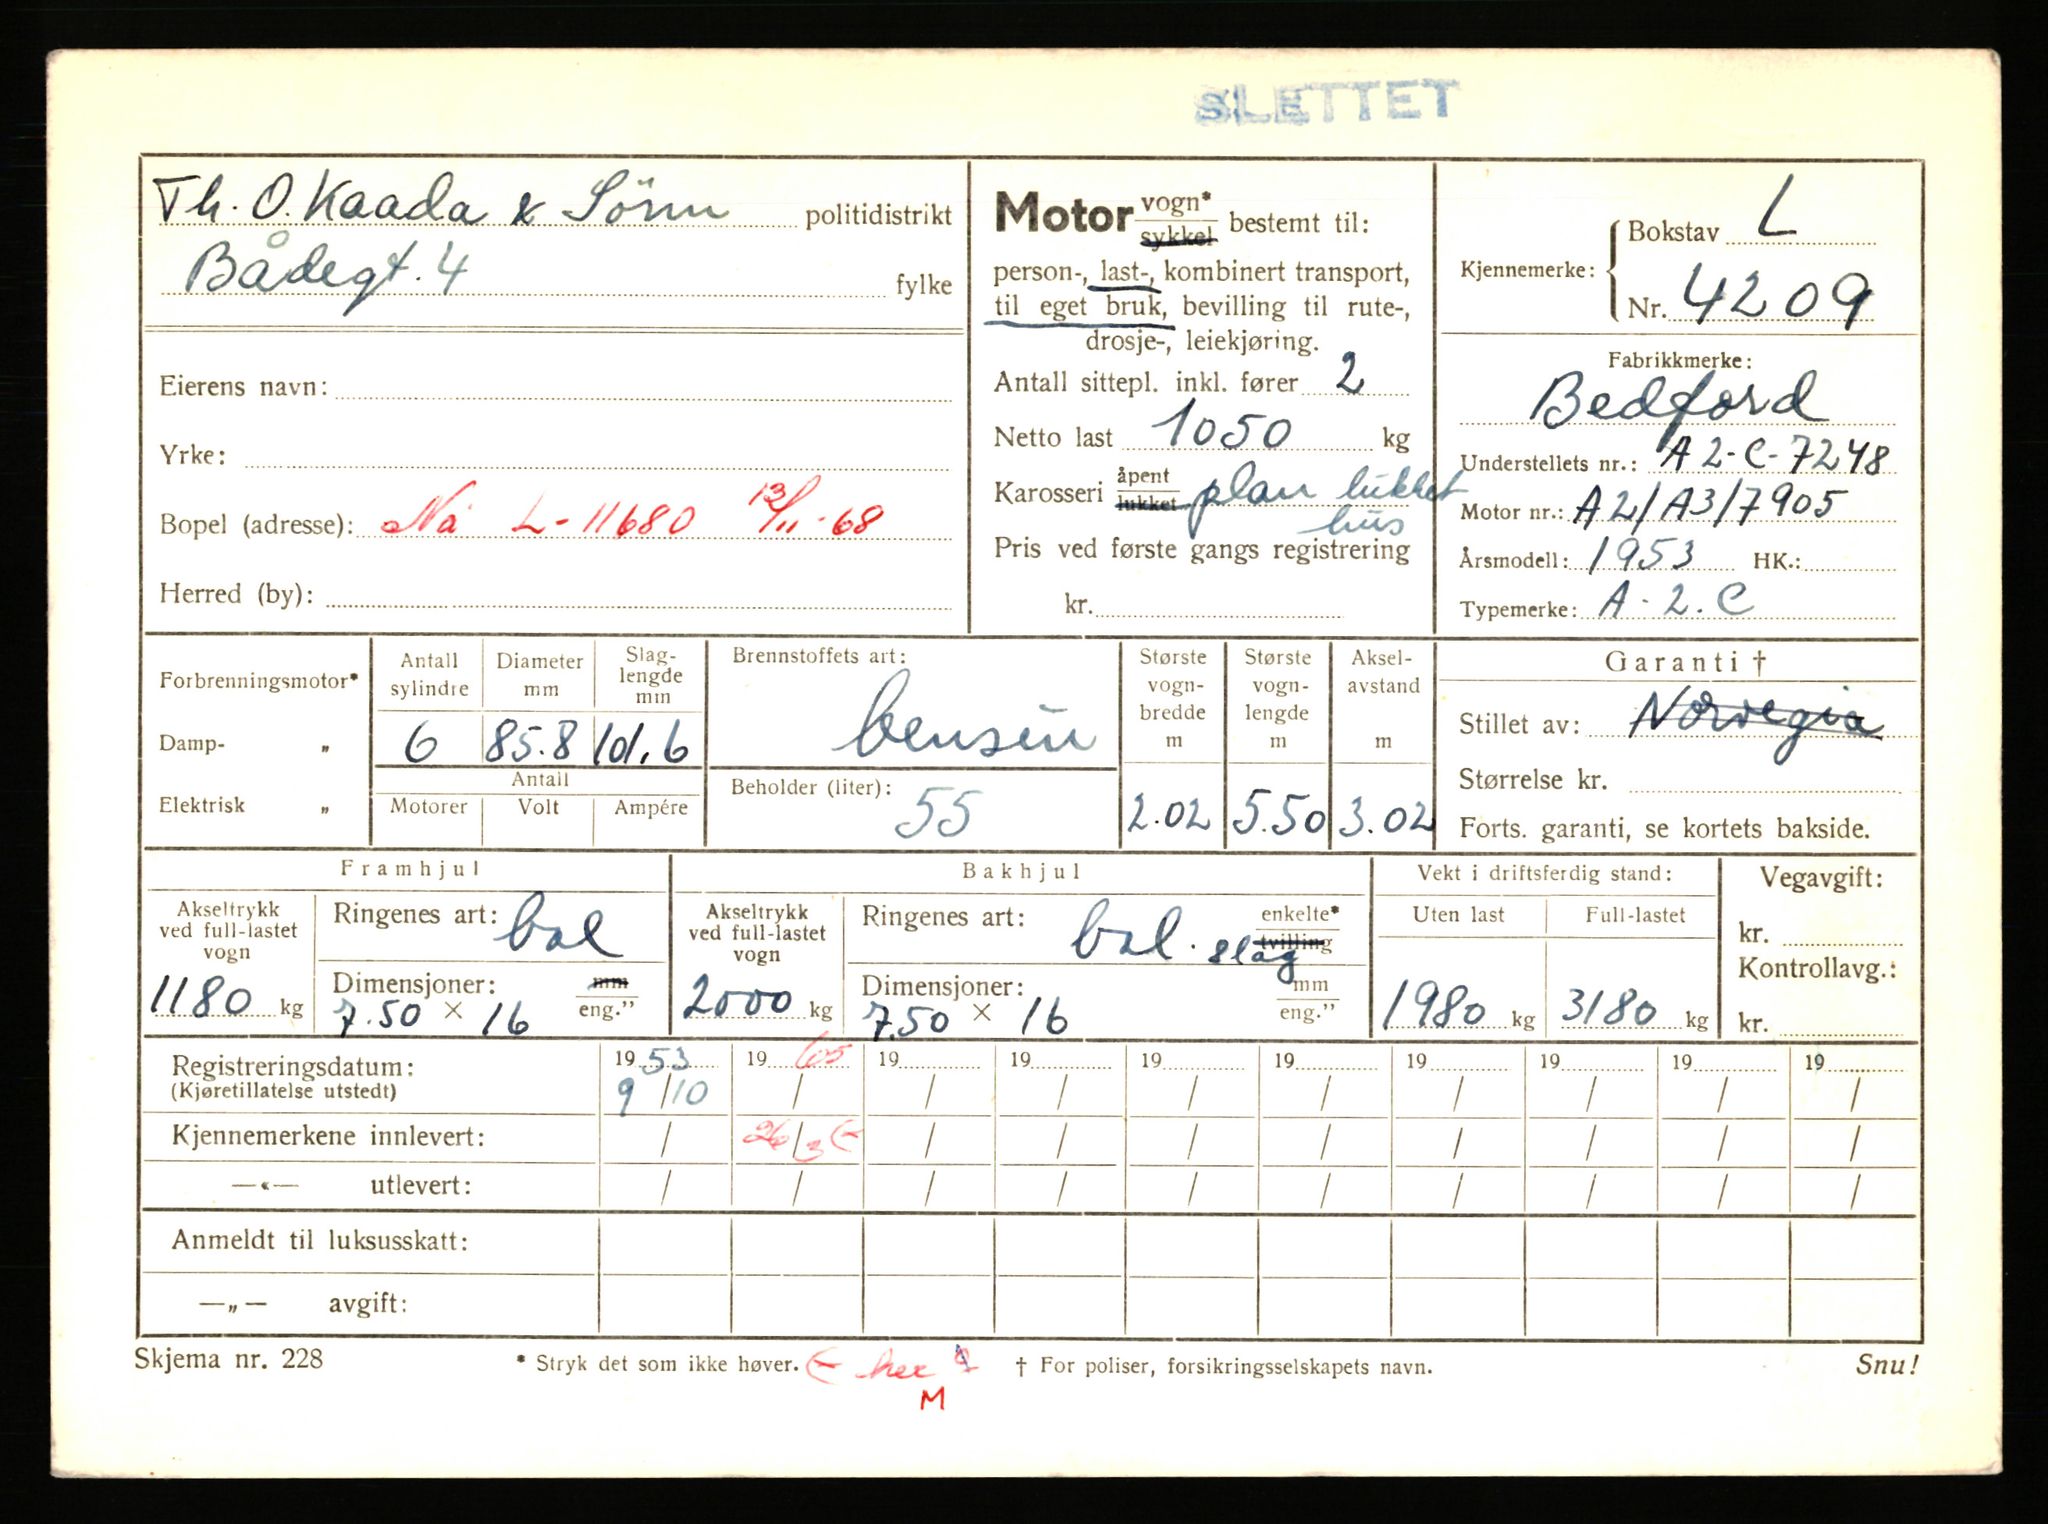 SLETTET
Th. O. Kaada & Sönn politidistrikt
Bådegt. 4 fylke
Eierens navn:
Yrke:
Bopel (adresse): Nå L-11680 13/11-68
Herred (by):
Motor vogn* sykkel bestemt til:
person-, last-, kombinert transport,
til eget bruk, bevilling til rute-,
drosje-, leiekjøring.
Antall sittepl. inkl. fører 2
Netto last 1050 kg
Karosseri åpent lukket plan lukket
hus
Pris ved første gangs registrering
kr.
Kjennemerke: { Bokstav L
Nr. 4209
Fabrikkmerke:
Bedford
Understellets nr.: A2-C-7248
Motor nr.: A2/A3/7905
Årsmodell: 1953 HK.:
Typemerke: A-2.C
Forbrenningsmotor*
Damp- „
Elektrisk „
Antall sylindre Diameter mm Slag- lengde mm
6 85.8 101.6
Antall
Motorer Volt Ampére
Brennstoffets art:
bensin
Beholder (liter):
55
Største vogn- bredde m Største vogn- lengde m Aksel- avstand m
2.02 5.50 3.02
Garanti †
Stillet av: Norvegia
Størrelse kr.
Forts. garanti, se kortets bakside.
Framhjul
Akseltrykk ved full-lastet vogn
1180 kg
Ringenes art: bal
Dimensjoner: mm
7.50 × 16 eng.”
Bakhjul
Akseltrykk ved full-lastet vogn
2000 kg
Ringenes art: bal. slag enkelte* tvilling
Dimensjoner: mm
7.50 × 16 eng.”
Vekt i driftsferdig stand:
Uten last Full-lastet
1980 kg 3180 kg
Vegavgift:
kr.
Kontrollavg.:
kr.
Registreringsdatum: 1953 1965 19 19 19 19 19 19 19 19
(Kjøretillatelse utstedt) 9/10 / / / / / / / / /
Kjennemerkene innlevert: / 26/3 / / / / / / / /
—«— utlevert: / / / / / / / / / /
Anmeldt til luksusskatt:
—„— avgift:
Skjema nr. 228 * Stryk det som ikke høver. her † For poliser, forsikringsselskapets navn. Snu!
M